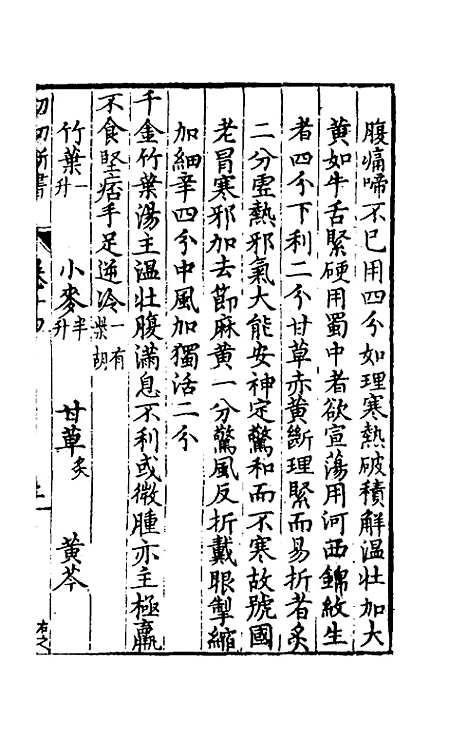 腹痛啼不已用四分如理寒熱破積解温壮加大
黄如牛舌緊硬用蜀中者欲宣蕩用河西錦紋生
者四分下利二分甘草赤黄斷理緊而易折者炙
二分虚熱邪氣大能安神定驚和而不寒故號國
老冒寒邪加去節麻黄一分驚風反折戴眼掣縮
加細辛四分中風加獨活二分
千金竹葉湯主温壮腹滿息不利或微腫亦主極羸
不食堅痞手足逆冷一有柴胡
竹葉一升 小麥半升 甘草炙 黄芩
幼幼新書